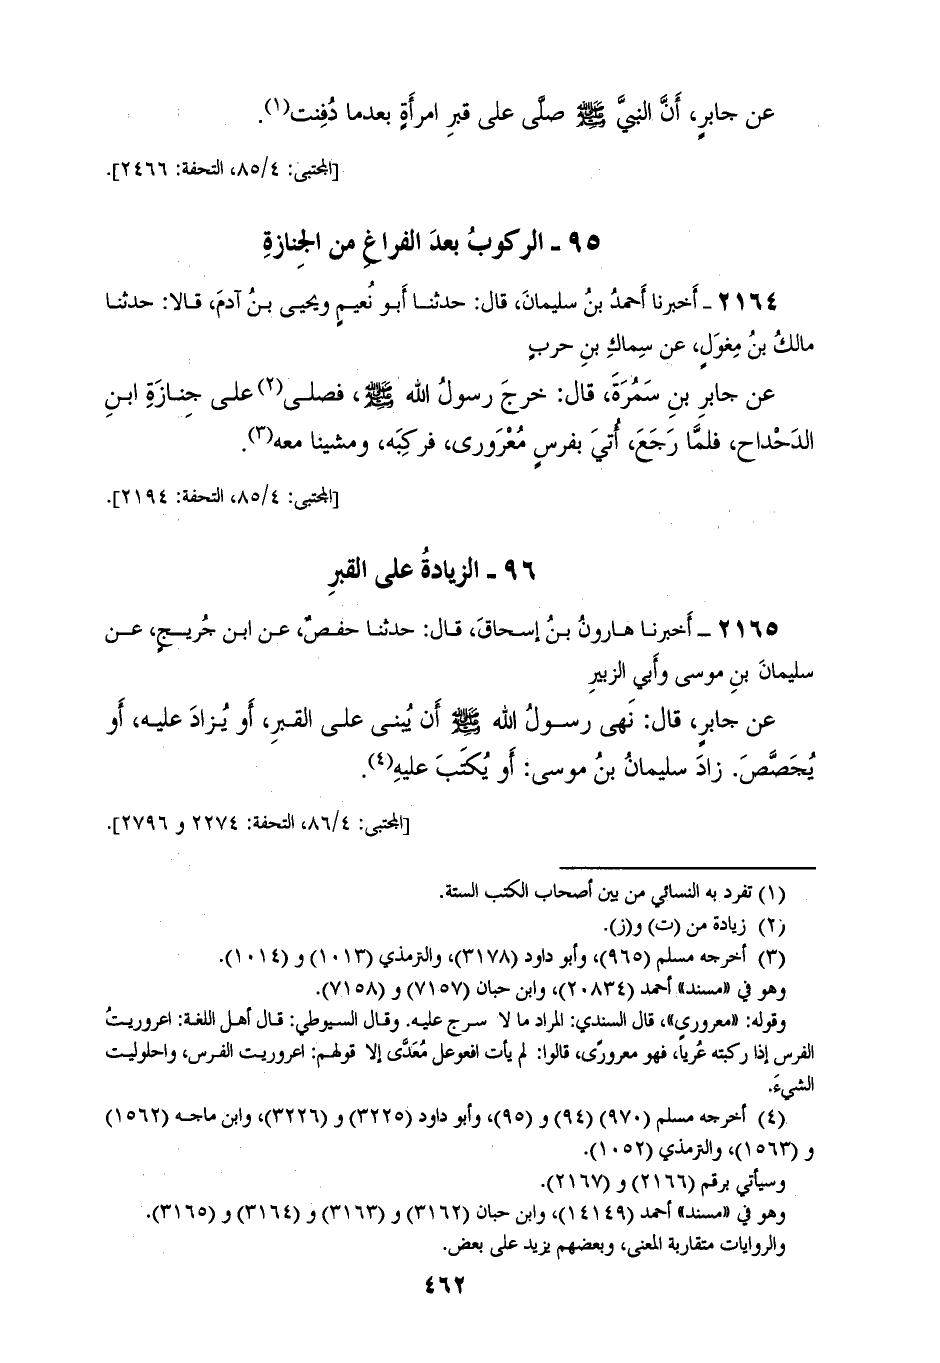 عن جابرٍ، أَنَّ النبيَّ ﷺ صلَّى على قبرِ امرأَةٍ بعدما دُفِنت(١).
[المجتبى: ٨٥/٤، التحفة: ٢٤٦٦].
٩٥ ـ الركوبُ بعدَ الفراغِ من الجِنازةِ
٢١٦٤ ـ أَخبرنا أَحمدُ بنُ سليمانَ، قال: حدثنا أَبو نُعيمٍ ويحيى بنُ آدمَ، قالا: حدثنا
مالكُ بنُ مِغوَلٍ، عن سِماكِ بنِ حربٍ
عن جابرِ بنِ سَمُرَةَ، قال: خرجَ رسولُ الله ﷺ، فصلى(٢) على جِنازَةِ ابنِ
الدَحْداحِ، فلمَّا رَجَعَ، أُتيَ بفرسٍ مُعْرَورى، فركِبَه، ومشينا معه(٣).
[المجتبى: ٨٥/٤، التحفة: ٢١٩٤].
٩٦ ـ الزيادةُ على القبرِ
٢١٦٥ ـ أَخبرنا هارونُ بنُ إسحاقَ، قال: حدثنا حفصٌ، عن ابن جُريجٍ، عن
سليمانَ بنِ موسى وأَبي الزبيرِ
عن جابرٍ، قال: نَهى رسولُ الله ﷺ أَن يُبنى على القبرِ، أَو يُزادَ عليه، أَو
يُجَصَّصَ. زادَ سليمانُ بنُ موسى: أَو يُكتَبَ عليهِ(٤).
[المجتبى: ٨٦/٤، التحفة: ٢٢٧٤ و ٢٧٩٦].
(١) تفرد به النسائي من بين أصحاب الكتب الستة.
(٢) زيادة من (ت) و(ز).
(٣) أخرجه مسلم (٩٦٥)، وأبو داود (٣١٧٨)، والترمذي (١٠١٣) و (١٠١٤).
وهو في «مسند» أحمد (٢٠٨٣٤)، وابن حبان (٧١٥٧) و (٧١٥٨).
وقوله: «معرورى»، قال السندي: المراد ما لا سرج عليه. وقال السيوطي: قال أهل اللغة: اعروريتُ
الفرس إذا ركبته عُرياً، فهو معرورًى، قالوا: لم يأت افعوعل مُعَدَّى إلا قولهم: اعروريت الفرس، واحلوليت
الشيءَ.
(٤) أخرجه مسلم (٩٧٠) (٩٤) و (٩٥)، وأبو داود (٣٢٢٥) و (٣٢٢٦)، وابن ماجه (١٥٦٢)
و (١٥٦٣)، والترمذي (١٠٥٢).
وسيأتي برقم (٢١٦٦) و (٢١٦٧).
وهو في «مسند» أحمد (١٤١٤٩)، وابن حبان (٣١٦٢) و (٣١٦٣) و (٣١٦٤) و (٣١٦٥).
والروايات متقاربة المعنى، وبعضهم يزيد على بعض.
٤٦٢